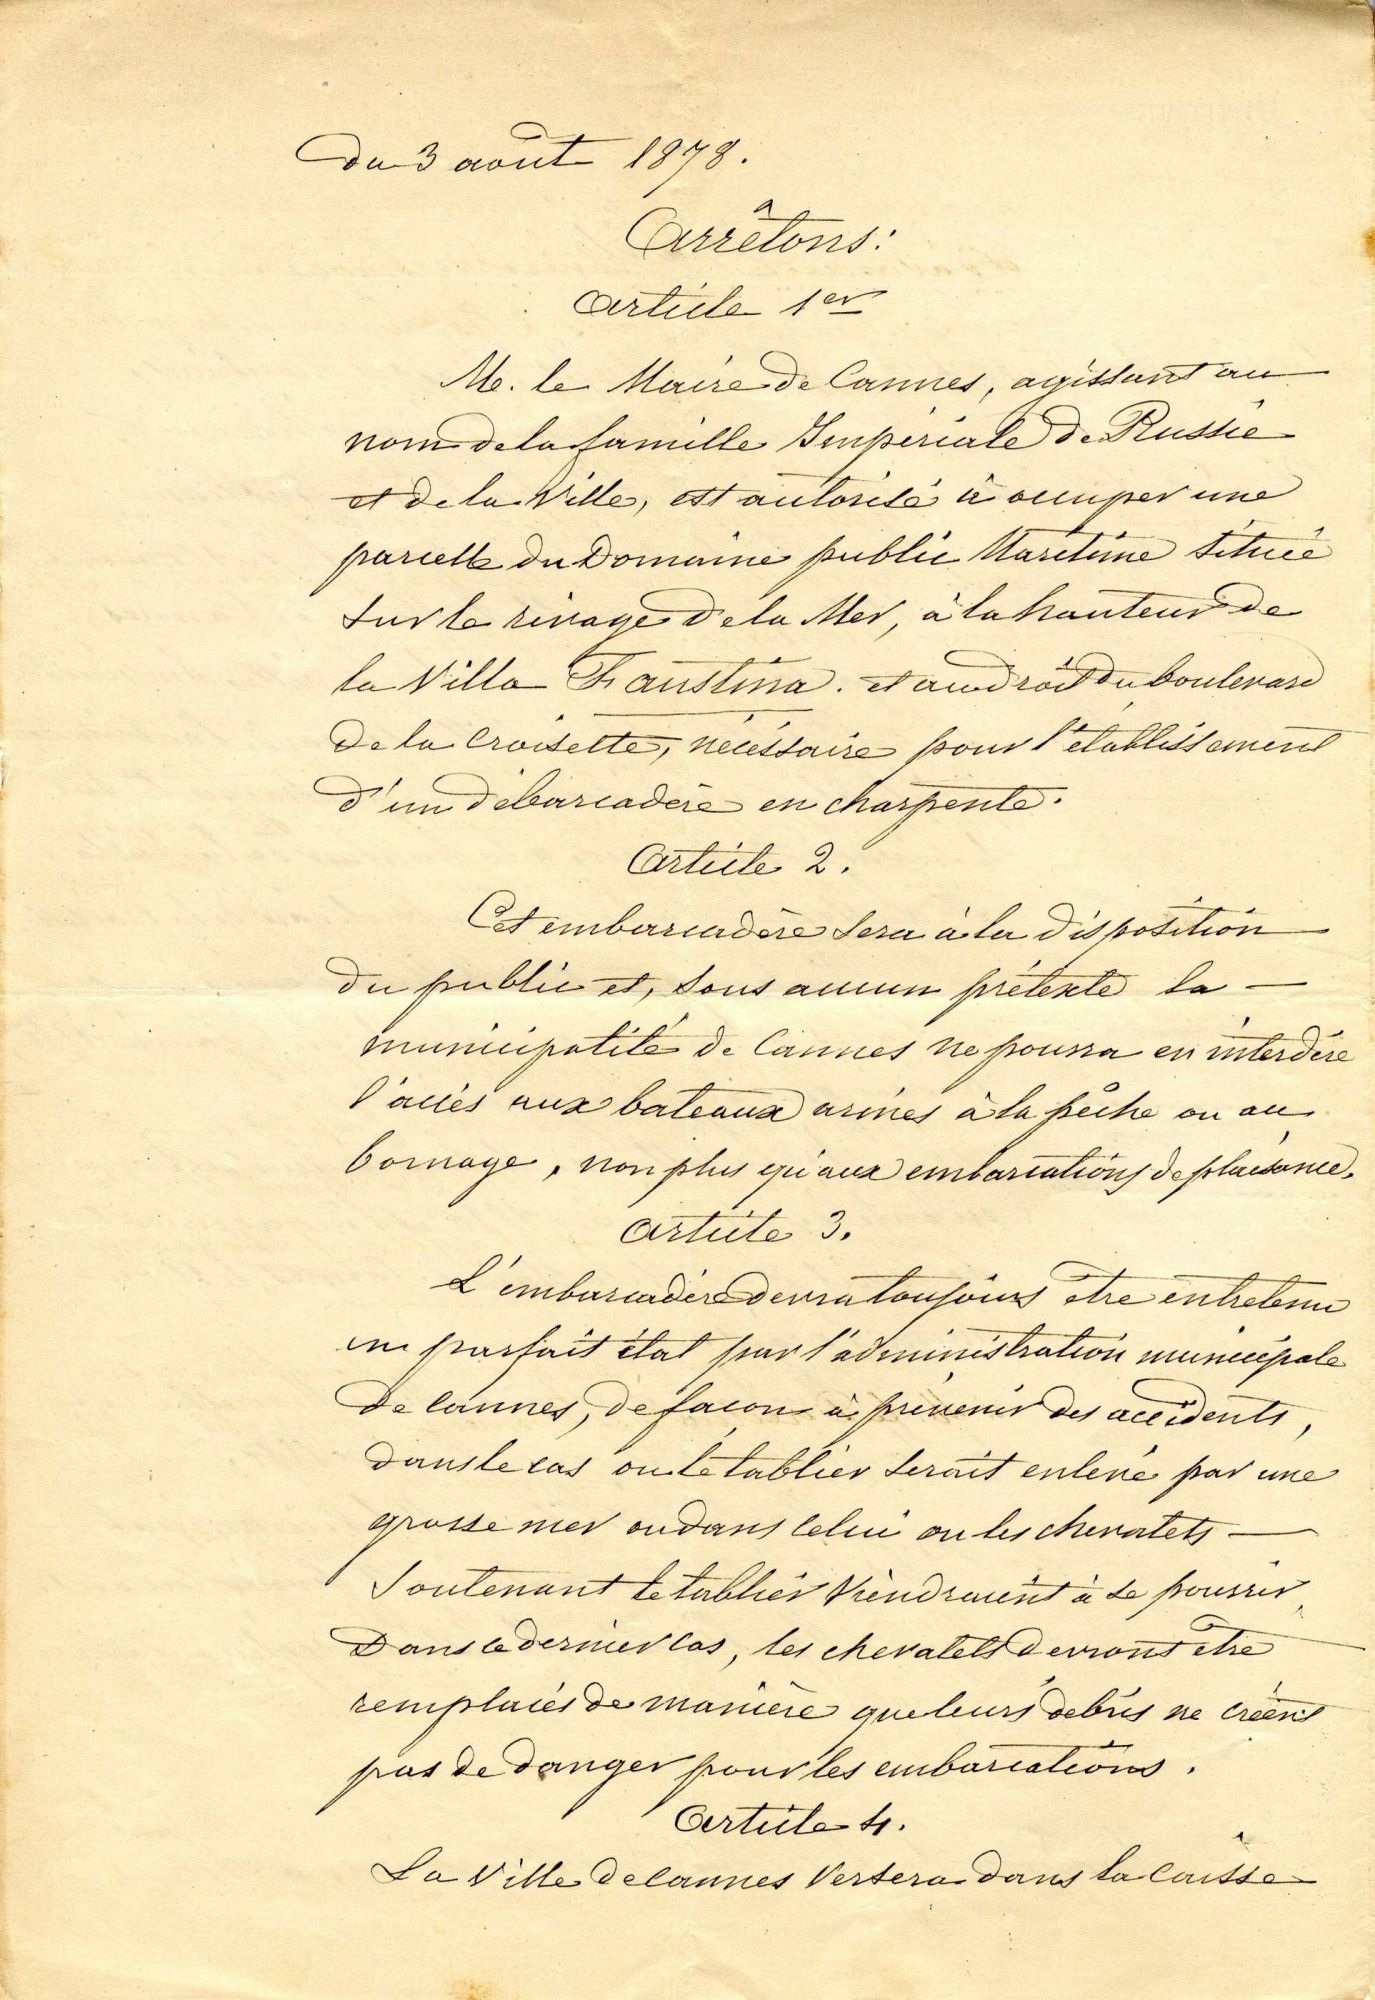 du 3 août 1878.
Arrêtons:
Article 1er
M. le Maire de Cannes, agissant au
nom de la famille Impériale de Russie
et de la Ville, est autorisé à occuper une
parcelle du Domaine public Maritime située
sur le rivage de la Mer, à la hauteur de
la Villa Faustina. et au droit du boulevard
de la Croisette, nécéssaire pour l'établissement
d'un débarcadère en charpente.
Article 2.
Cet embarcadère sera à la disposition
du public et, sous aucun prétexte la —
municipalité de Cannes ne pourra en interdire
l'accès aux bateaux armés à la pêche ou au
bornage, non plus qu'aux embarcations de plaisance.
Article 3.
L'embarcadère devra toujours être entretenu
en parfait état par l'administration municipale
de Cannes, de façon à prévenir des accidents,
dans le cas ou le tablier serait enlevé par une
grosse mer ou dans celui ou les chevalets —
soutenant le tablier viendraient à se pourrir,
Dans ce dernier cas, les chevalets devront être
remplacés de manière que leurs débris ne créent
pas de danger pour les embarcations.
Article 4.
La Ville de Cannes versera dans la Caisse